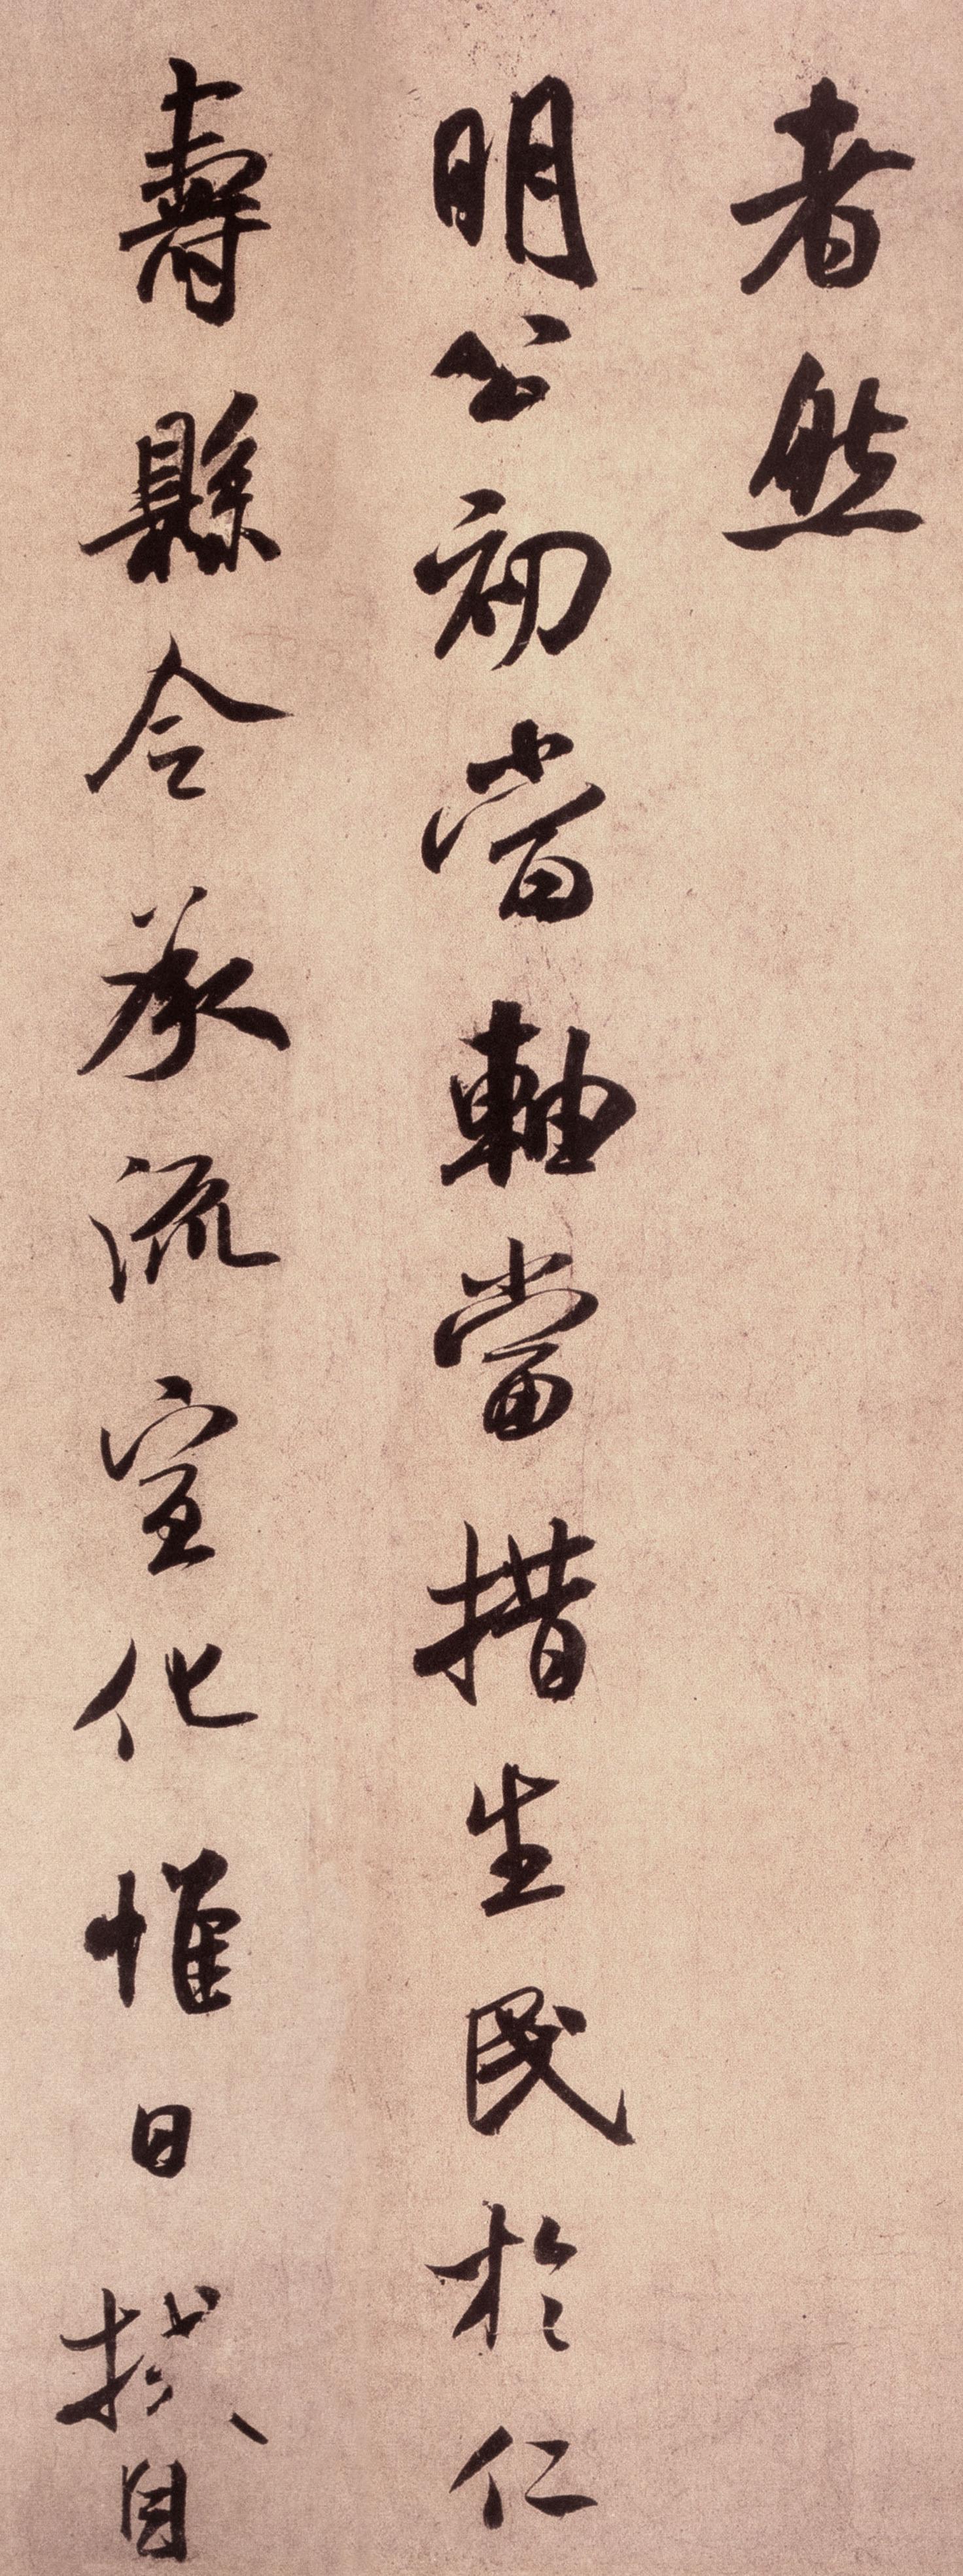 者然
明公初當軸當措生民於仁
壽縣令承流宣化惟日拭目